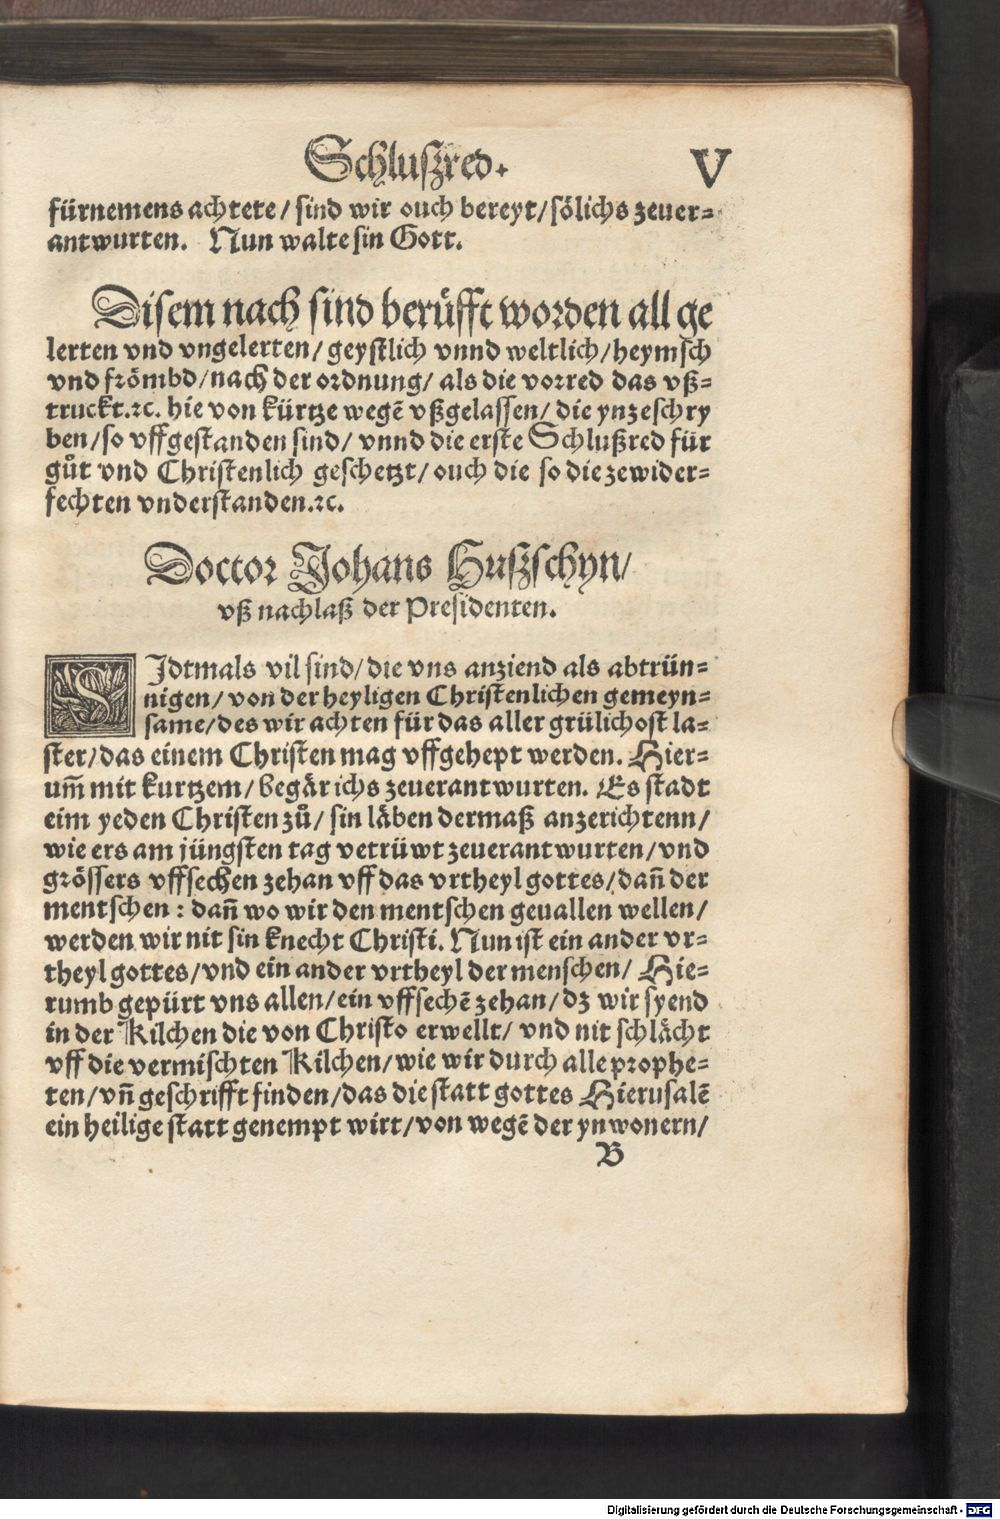 Schluſzred. V
fürnemens achtete/ sind wir ouch bereyt/ sölichs zeuer⸗
antwurten. Nun walte sin Gott.
Disem nach sind berüfft worden all ge
lerten vnd vngelerten/ geystlich vnnd weltlich/ heymsch
vnd frömbd/ nach der ordnung/ als die vorred das vß⸗
truckt.ꝛc. hie von kürtze wegē vßgelassen/ die ynzeschry
ben/ so vffgestanden sind/ vnnd die erste Schlußred für
gůt vnd Christenlich geschetzt/ ouch die so die zewider⸗
fechten vnderstanden.ꝛc.
Doctor Johans Huſzschyn/
vß nachlaß der Presidenten.
SJdtmals vil sind/ die vns anziend als abtrün⸗
nigen/ von der heyligen Christenlichen gemeyn⸗
same/ des wir achten für das aller grülichost la⸗
ster/ das einem Christen mag vffgehept werden. Hier⸗
um̄ mit kurtzem/ begär ichs zeuerantwurten. Es stadt
eim yeden Christen zů/ sin läben dermaß anzerichtenn/
wie ers am jüngsten tag vetrüwt zeuerantwurten/ vnd
grössers vffsechen zehan vff das vrtheyl gottes/ dañ der
mentschen: dañ wo wir den mentschen geuallen wellen/
werden wir nit sin knecht Christi. Nun ist ein ander vr⸗
theyl gottes/ vnd ein ander vrtheyl der menschen/ Hie⸗
rumb gepürt vns allen/ ein vffsechē zehan/ dz wir syend
in der Kilchen die von Christo erwellt/ vnd nit schlächt
vff die vermischten Kilchen/ wie wir durch alle prophe⸗
ten/ vñ geschrifft finden/ das die statt gottes Hierusalē
ein heilige statt genempt wirt/ von wegē der ynwonern/
B
Digitalisierung gefördert durch die Deutsche Forschungsgemeinschaft - DFG